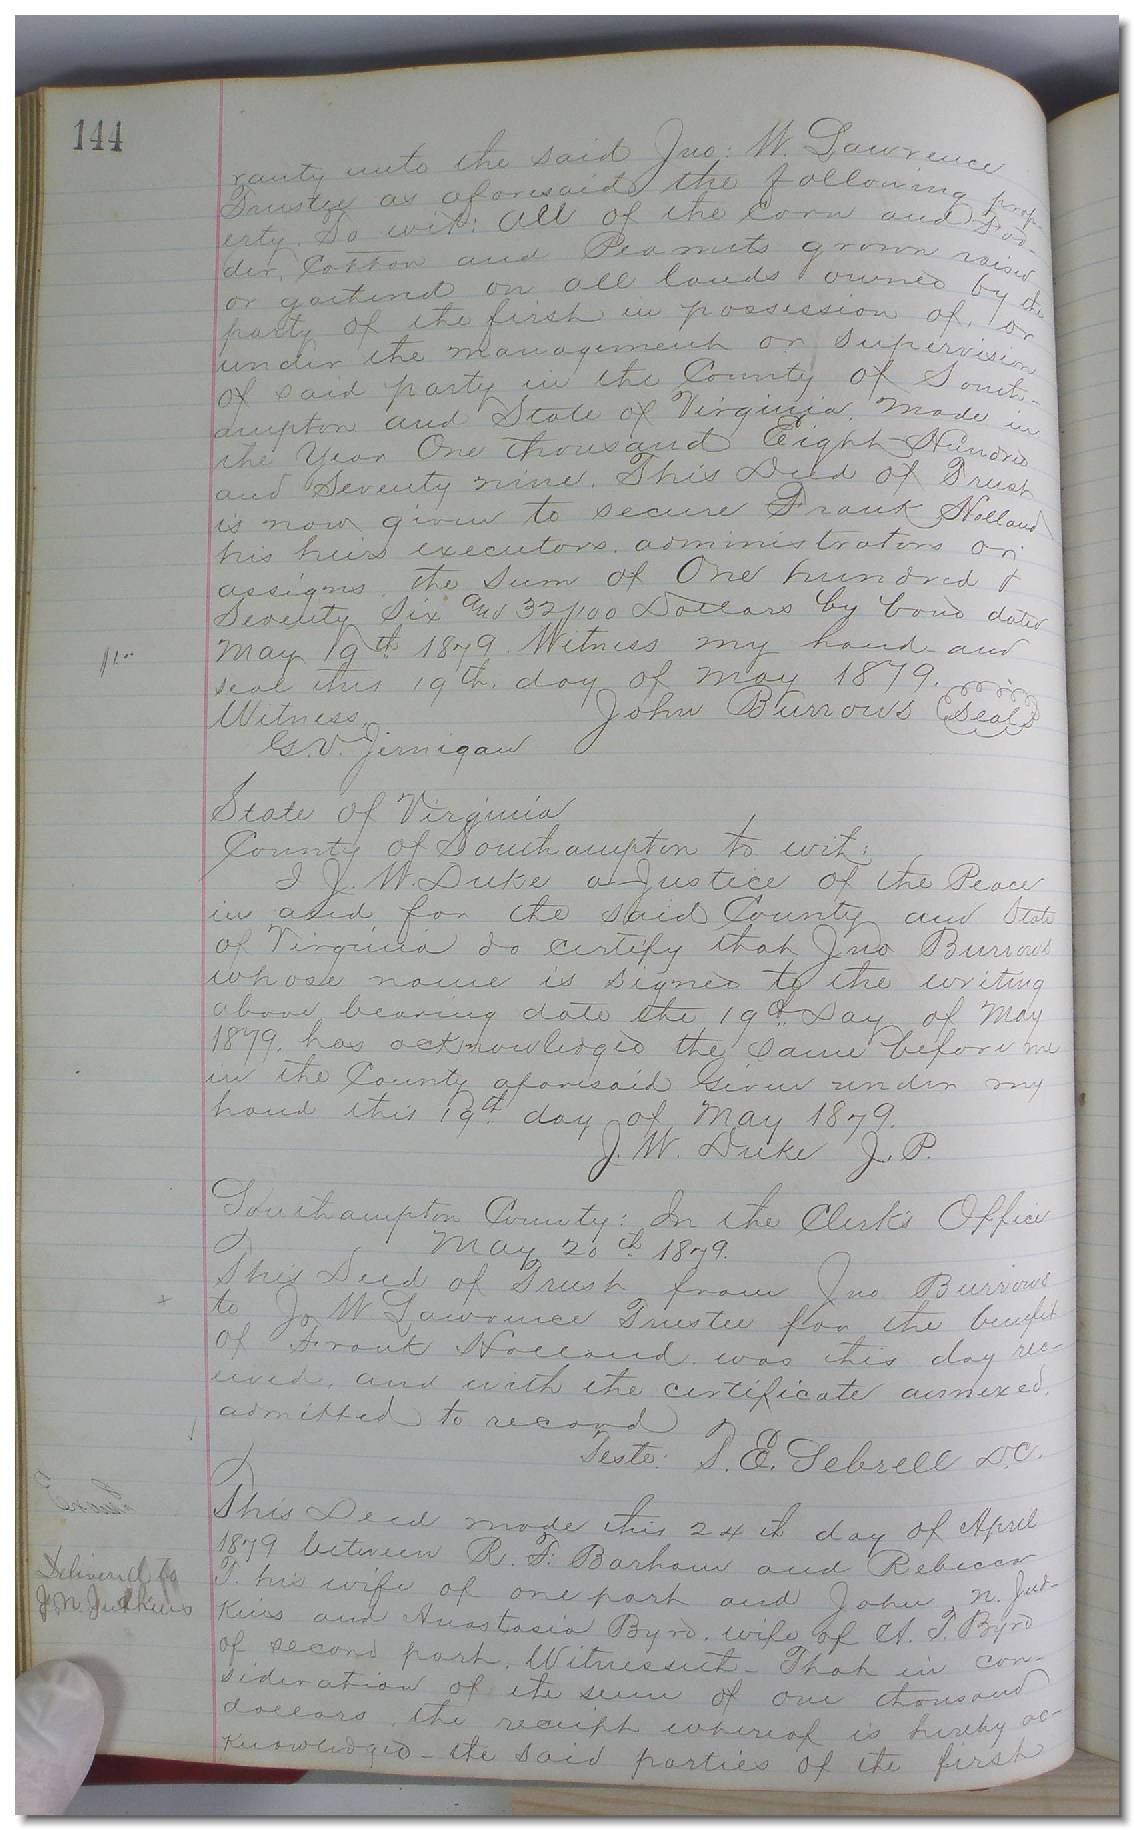 144
ranty unto the said Jno: W. Lawrence
Trustee as aforesaid the following prop-
erty. To wit: all of the Corn and Fod-
der, Cotton and Peanuts grown raised
or gathered on all lands owned by the
party of the first in possession of, or
under the management or Supervision
of said party in the County of South-
ampton and State of Virginia. Made in
the Year One thousand Eight Hundred
and Seventy nine. This Deed of Trust
is now given to secure Frank Holland
his heirs executors. administrators or
assigns. the Sum of One hundred &
Seventy Six and 32/100 Dollars by bond dated
May 19th 1879. Witness my hand and
seal this 19th. day of May 1879.
Witness, John Burrows Seal
G.V. Jernigan
State of Virginia
County of Southampton to wit:
I J. W. Duke a Justice of the Peace
in and for the said County and State
of Virginia do certify that Jno Burrows
whose name is signed to the writing
above bearing date the 19th Day of May
1879. has acknowledged the same before me
in the County aforesaid Given under my
hand this 19th day of May 1879.
J. W. Duke J. P.
Southampton County: In the Clerk's Office
May 20th 1879.
This Deed of Trust from Jno Burrows
to Jo W Lawrence Trustee for the benefit
of Frank Holland. was this day rec-
eived. and with the certificate annexed.
admitted to record
Teste: T. E. Sebrell D.C.
This Deed made this 24th day of April
1879 between R. T. Barham and Rebecca
T. his wife of one part and John N. Jud-
Delivered to
J N Judkins
kins and Anastasia Byrd. wife of A. T. Byrd
of second part. Witnesseth- That in con-
sideration of the sum of one thousand
dollars. the receipt whereof is hereby ac-
knowledged- the said parties of the first